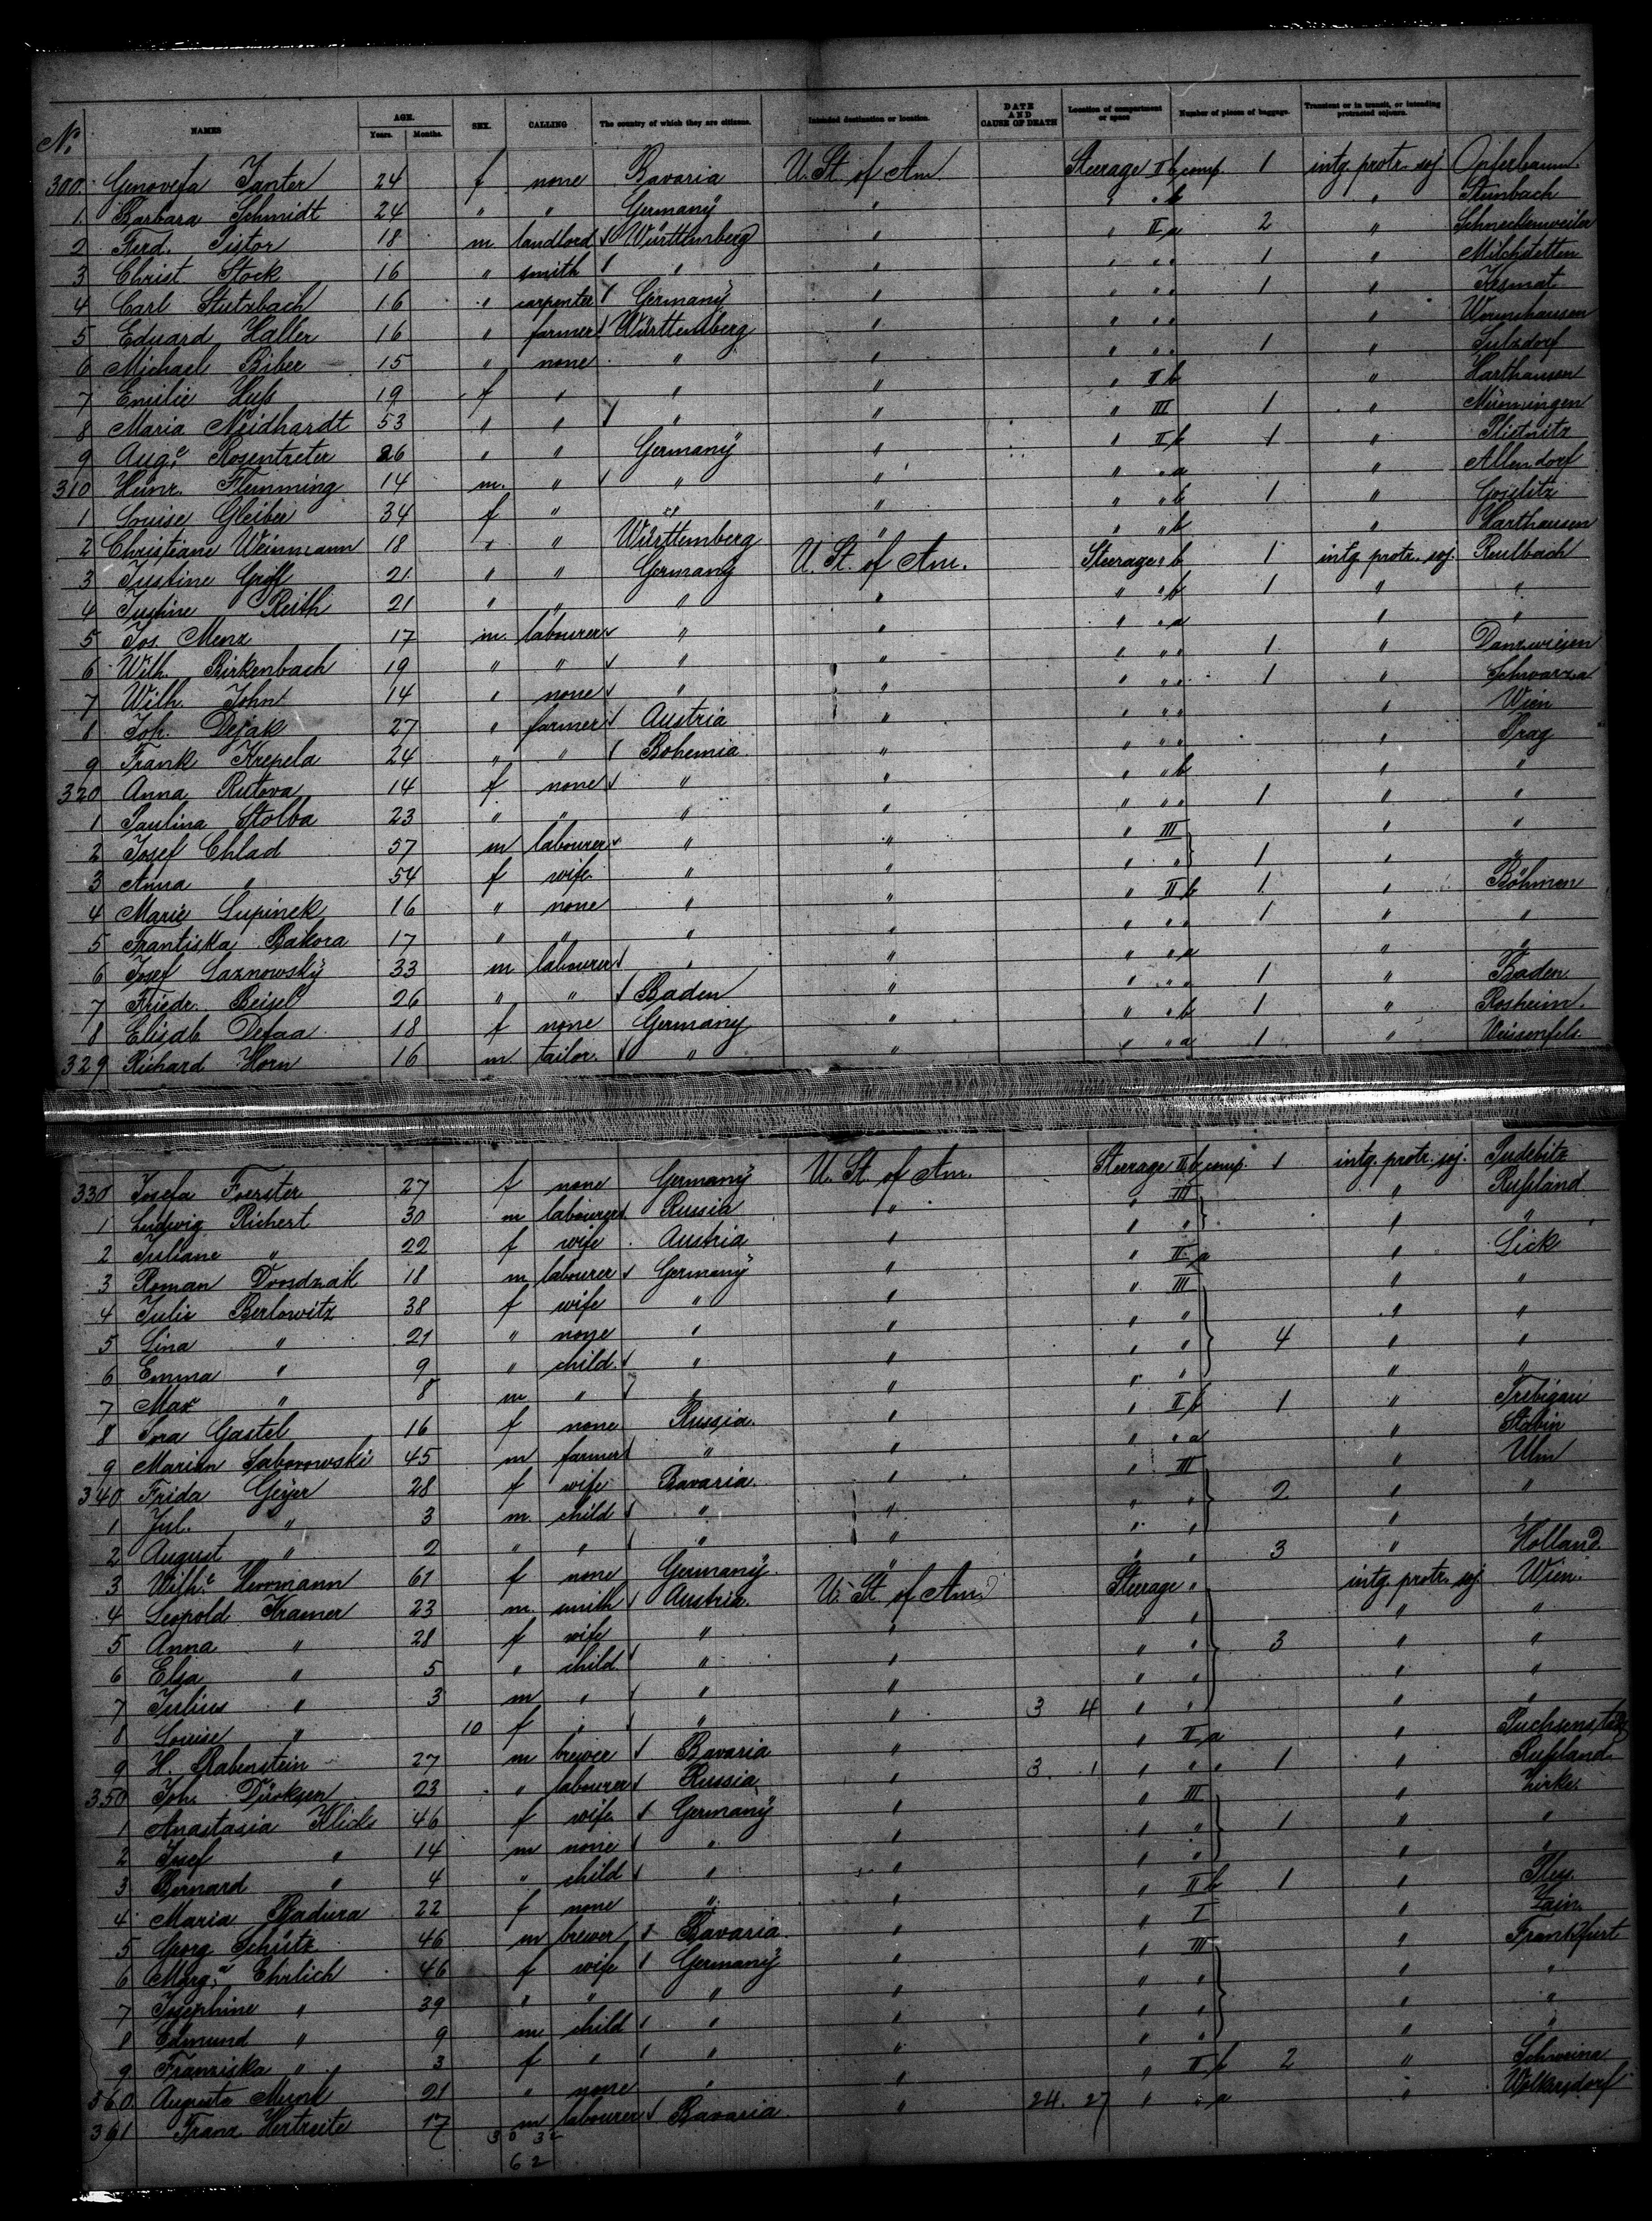 No. NAMES AGE. Years. Months. SEX. CALLING The country of which they are citizens. Intended destination or location. DATE AND CAUSE OF DEATH Location of compartment or space Number of pieces of baggage. Transient or in transit, or intending protracted sojourn.
300 Genovefa 24 f none Bavaria U. St. of Am Steerage II b comp. 1 intg. protr. soj
1 Barbara Schmidt 24 " " Germany " " " b " Steinbach
2 Ferd. Pistor 18 m landlord Württemberg " " II a 2 "
3 Christ Stock 16 " smith " " " " " 1 "
4 Carl Stutzbach 16 " carpenter Germany " " " " 1 "
5 Eduard Haller 16 " farmer Württemberg " " " " "
6 Michael Biber 15 " none " " " " " 1 " Sulzdorf
7 Emilie Huß 19 f " " " " II b " Harthausen
8 Maria Neidhardt 53 " " " " " III 1 "
9 Aug.e Rosentreter 26 " " Germany " " II b 1 " Plietnitz
310 Heinr. Flemming 14 m. " " " " " a " Allendorf
1 Louise Gleiber 34 f " " " " " b 1 "
2 Christiane Weinmann 18 " " Württemberg " " " b " Harthausen
3 Justine Grift 21 " " Germany U. St. of Am. Steerage " b 1 intg. protr. soj. Reulbach
4 Justine Reith 21 " " " " " " b 1 " "
5 Jos. Menz 17 m. labourer " " " " a " "
6 Wilh. Birkenbach 19 " " " " " " " 1 "
7 Wilh. John 14 " none " " " " " 1 " Schwarza
8 Joh. Dejak 27 " farmer Austria " " " " " Wien
9 Frank Krepela 24 " " Bohemia " " " " " Prag
320 Anna Rutova 14 f none " " " " b " "
1 Paulina Stolba 23 " " " " " " " 1 " "
2 Josef Chlad 57 m labourer " " " III " "
3 Anna " 54 f wife " " " " 1 " "
4 Marie Lupinek 16 " none " " " II b 1 " Böhmen
5 Frantiska Bakora 17 " " " " " " " 1 " "
6 Josef Laznowsky 33 m labourer " " " " a " "
7 Friedr. Beisel 26 " " Baden " " " " 1 " Baden
8 Elisab. Defaa 18 f none Germany " " " b 1 " Rosheim
329 Richard Horn 16 m tailor " " " " a 1 " Weissenfels
330 Josefa Foerster 27 f none Germany U. St. of Am. Steerage II b comp. 1 intg. protr. soj. Pudebitz
1 Ludwig Richert 30 m labourer Russia " " III " Rußland
2 Juliane " 22 f wife Austria " " " " "
3 Roman 18 m labourer Germany " " II a " Lick
4 Julie Berlowitz 38 f wife " " " III " "
5 Lina " 21 " none " " " " " "
6 Emma " 9 " child " " " " 4 " "
7 Max " 8 m " " " " " " "
8 Sora Gastel 16 f none Russia " " II b 1 "
9 Marian Saborowski 45 m farmer " " " " a " Stabin
340 Frida Geyer 28 f wife Bavaria " " III " Ulm
1 Jul. " 3 m. child " " " " 2 " "
2 August " 2 " " " " " " " "
3 Wilh.e Herrmann 61 f none Germany " " " 3 " Holland
4 Leopold Kramer 23 m. smith Austria U. St. of Am. Steerage " intg. protr. soj. Wien
5 Anna " 28 f wife " " " " " "
6 Elsa " 5 " child " " " " 3 " "
7 Julius " 3 m " " " " " " "
8 Louise " 10 f " " " 3 4 " " " "
9 H. Rabenstein 27 m brewer Bavaria " " II a "
350 Joh. Dürksen 23 " labourer Russia " 3 1 " " " 1 " Rußland
1 Anastasia Klicks 46 f wife Germany " " III " Zirke
2 Josef " 14 m none " " " " 1 " "
3 Bernard " 4 " child " " " " " "
4 Maria Badura 22 f none " " " II b 1 " Pless
5 Georg Schütz 46 m brewer Bavaria " " I "
6 Marg.a Ehrlich 46 f wife Germany " " III " Frankfurt
7 Josephine " 39 " " " " " " " "
8 Edmund " 9 m child " " " " " "
9 Franziska " 3 f " " " " " " "
360 Augusta Mund 21 " none " " " II b 2 " Schweina
361 Franz 17 m labourer Bavaria " 24. 27 " " a " Wolkersdorf
30 32
62